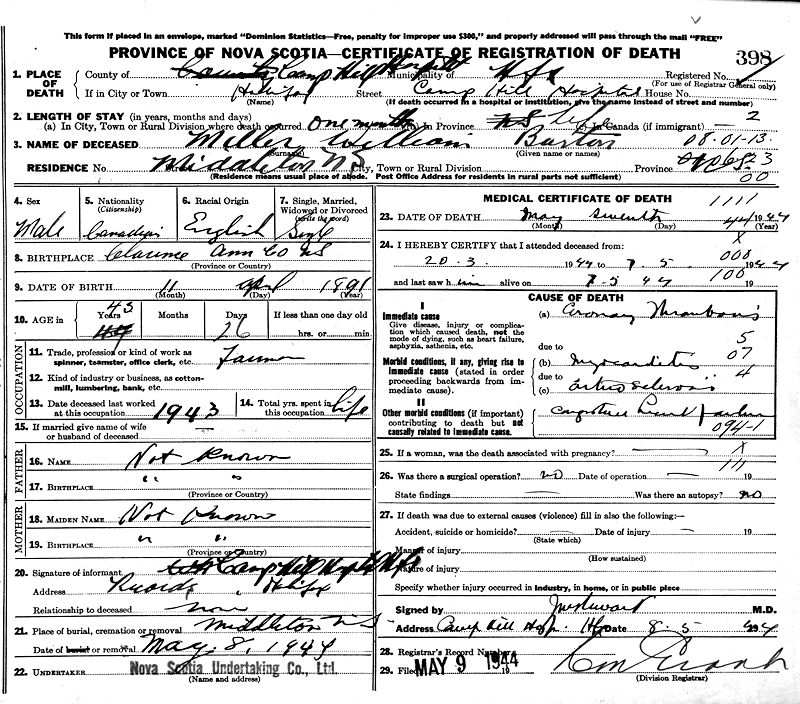 This form if placed in an envelope, marked "Dominion Statistics—Free, penalty for improper use $300," and properly addressed will pass through the mail "FREE"
PROVINCE OF NOVA SCOTIA—CERTIFICATE OF REGISTRATION OF DEATH
398
1. PLACE OF DEATH County of Camp Hill Hospital Municipality of Hfx Registered No.
(For use of Registrar General only)
If in City or Town Halifax Street Camp Hill Hospital House No.
(Name) (If death occurred in a hospital or institution, give the name instead of street and number)
2. LENGTH OF STAY (in years, months and days)
(a) In City, Town or Rural Division where death occurred One month (b) in Province life (c) in Canada (if immigrant) — 2
3. NAME OF DECEASED Miller William Burton 08-01-13-
(Surname) (Given name or names)
RESIDENCE No. Middleton N.S. City, Town or Rural Division Province
(Residence means usual place of abode. Post Office Address for residents in rural parts not sufficient) 00
4. Sex Male
5. Nationality (Citizenship) Canadian
6. Racial Origin English
7. Single, Married, Widowed or Divorced (write the word) Single
8. BIRTHPLACE Clarence Ann Co NS
(Province or Country)
9. DATE OF BIRTH 11 April 1891
(Month) (Day) (Year)
10. AGE in Years 43 Months Days 26 If less than one day old
hrs. or min.
OCCUPATION
11. Trade, profession or kind of work as spinner, teamster, office clerk, etc. Farmer
12. Kind of industry or business, as cotton-mill, lumbering, bank, etc.
13. Date deceased last worked at this occupation 1943
14. Total yrs. spent in this occupation life
15. If married give name of wife or husband of deceased —
FATHER
16. NAME Not Known
17. BIRTHPLACE " "
(Province or Country)
MOTHER
18. MAIDEN NAME Not Known
19. BIRTHPLACE " "
(Province or Country)
20. Signature of informant Camp Hill Hospital Hfx
Address Records " Halifax
Relationship to deceased none
21. Place of burial, cremation or removal Middleton N S
Date of burial or removal May. 8, 1944
22. UNDERTAKER Nova Scotia Undertaking Co., Ltd.
(Name and address)
MEDICAL CERTIFICATE OF DEATH
1111
23. DATE OF DEATH May Seventh 44 1944
(Month) (Day) (Year)
X
24. I HEREBY CERTIFY that I attended deceased from:
000
20.3. 1944 to 7.5. 1944
and last saw him alive on 7-5 44 100 19
CAUSE OF DEATH
I
Immediate cause
Give disease, injury or complication which caused death, not the mode of dying, such as heart failure, asphyxia, asthenia, etc.
(a) Coronary Thrombosis
5
due to
07
Morbid conditions, if any, giving rise to immediate cause (stated in order proceeding backwards from immediate cause).
(b) Myocarditis
4
due to
(c) Arteriosclerosis
II
Other morbid conditions (if important) contributing to death but not causally related to immediate cause.
094-1
25. If a woman, was the death associated with pregnancy? — X
111
26. Was there a surgical operation? no Date of operation — 19
State findings — Was there an autopsy? no
27. If death was due to external causes (violence) fill in also the following:—
Accident, suicide or homicide? — Date of injury — 19
(State which)
Manner of injury
(How sustained)
Nature of injury
Specify whether injury occurred in industry, in home, or in public place
Signed by M.D.
Address Camp Hill Hosp. Hfx Date 8-5 1944
28. Registrar's Record Number
29. Filed MAY 9 1944 19
(Division Registrar)